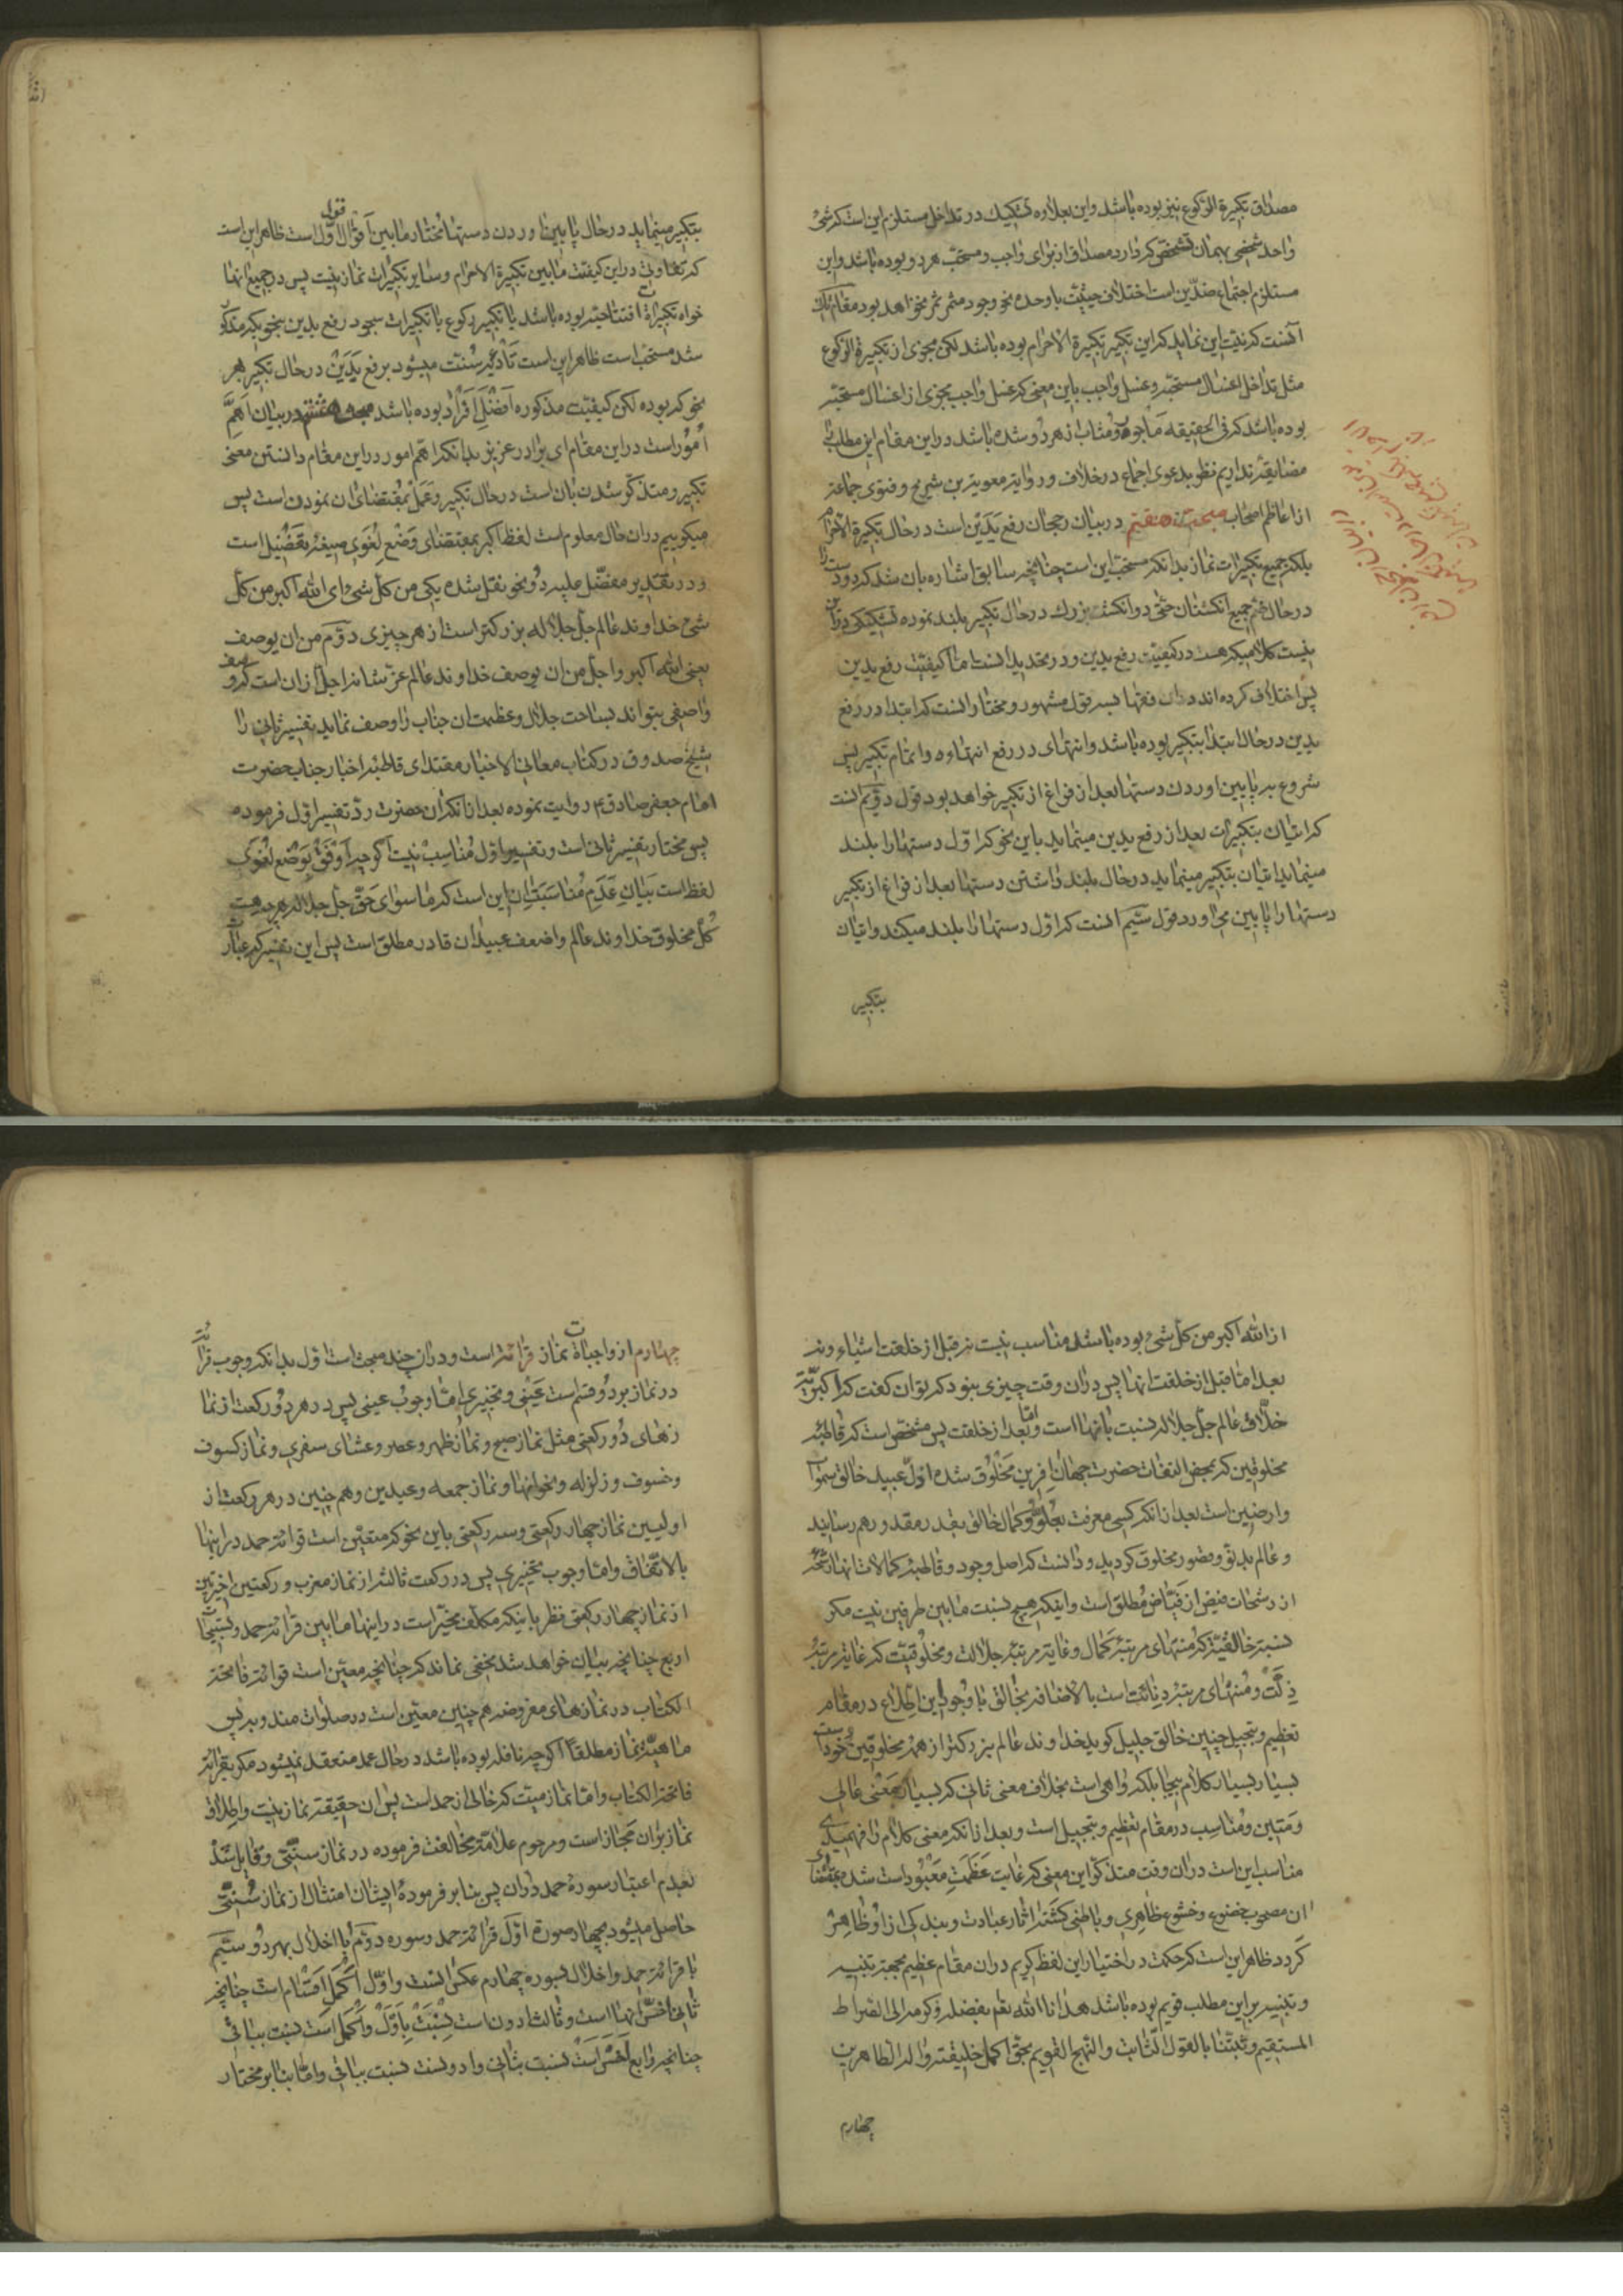 مصداق تکبیرة الرکوع نیز بوده باشد و این بعلاوه تشکیک در تداخل مستلزم این است که شیء
واحد شخصی بهمان تشخص که دارد مصداق از برای واجب و مستحب هر دو بوده باشد و این
مستلزم اجتماع ضدین است اختلاف حیثیت با وحدة نحو وجود مثمر ثمر نخواهد بود مقام
آنست که نیت این نماید که این تکبیر تکبیرة الاحرام بوده باشد لکن مجزی از تکبیرة الرکوع
مثل تداخل اغسال مستحبه و غسل واجب باین معنی که غسل واجب مجزی از اغسال مستحبه
بوده باشد که فی الحقیقه مأجور و مثاب از هر دو شده باشد در این مقام این مطلب
مضایقه نداریم نظر بدعوی اجماع در خلاف و روایة معویة بن شریح و فتوی جماعة
از اعاظم اصحاب مبحث هفتم در بیان رجحان رفع یدین است در حال تکبیرة الاحرام
بلکه جمیع تکبیرات نماز بدانکه مستحب این است چنانچه سابقا اشاره بان شد که دو دست را
در حال ضم جمیع انگشتان حتی دو انگشت بزرگ در حال تکبیر بلند نموده تشکیکی در آن
نیست کلامیکه هست در کیفیت رفع یدین و در تحدید آنست اما کیفیت رفع یدین
پس اختلاف کرده اند در آن فقها بسه قول مشهور و مختار آنست که ابتدا در رفع
یدین در حال ابتدا بتکبیر بوده باشد و انتهای در رفع انتهاء و اتمام تکبیر پس
شروع بر پایین اوردن دستها بعد از فراغ از تکبیر خواهد بود قول دویم انست
که اتیان بتکبیرات بعد از رفع یدین مینماید باین نحو که اول دستها را بلند
مینماید اتیان بتکبیر مینماید در حال بلند داشتن دستها بعد از فراغ از تکبیر
دستها را پایین می اورد قول سیم انست که اول دستها را بلند میکند و اتیان
بتکبیر
بتکبیر مینماید در حال پایین اوردن دستها مختار مابین اقوال قول اول است ظاهر این است
که تفاوتی در این کیفیت مابین تکبیرة الاحرام و سایر تکبیرات نماز نیست پس در جمیع انها
خواه تکبیرات افتتاحیه بوده باشد یا تکبیر رکوع یا تکبیرات سجود رفع یدین بنحویکه مذکور
شد مستحب است ظاهر این است تأدیه سنت میشود برفع یدین در حال تکبیر بهر
نحو که بوده لکن کیفیت مذکوره افضل افراد بوده باشد مبحث هشتم در بیان اهم
امور است در این مقام ای برادر عزیز بدانکه اهم امور در این مقام دانستن معنی
تکبیر و متذکر شدن بان است در حال تکبیر و عمل بمقتضای ان نمودن است پس
میگوییم در ان حال معلوم است لفظ اکبر بمقتضای وضع لغوی صیغه تفضیل است
و در تقدیر مفضل علیه دو نحو نقل شده یکی من کل شیء ای الله اکبر من کل
شیء خداوند عالم جل جلاله بزرگتر است از هر چیزی دوم من ان یوصف
یعنی الله اکبر و اجل من ان یوصف خداوند عالم عز شانه اجل از ان است که وصف
واصفی بتواند بساحت جلال و عظمت ان جناب را وصف نماید تفسیر ثانی را
شیخ صدوق در کتاب معانی الاخبار مقتدای قاطبه اخیار جناب حضرت
امام جعفر صادق ع روایت نموده بعد از انکه آن حضرت رد تفسیر اول فرموده
پس مختار تفسیر ثانی است و تفسیر اول مناسب نیست اگر چه اوفق بوضع لغوی
لفظ است بیان عدم مناسبت ان این است که ما سوای حق جل جلاله هر چه هست
کل مخلوق خداوند عالم و اضعف عبید ان قادر مطلق است پس این تفسیر که عبارت
از الله اکبر من کل شیء بوده باشد مناسب نیست نه قبل از خلقت اشیاء و نه
بعد اما قبل از خلقت انها پس در ان وقت چیزی نبود که توان گفت که اکبریة
خلاق عالم جل جلاله نسبت بانها است و اما بعد از خلقت پس مشخص است که قاطبه
مخلوقین که بمحض التفات حضرت جهان افرین مخلوق شده اول عبید خالق سموات
و ارضین است بعد از انکه کسی معرفت بعلو و کمال خالق بقدر مقدور هم رسانید
و عالم بدنو و قصور مخلوق گردید و دانست که اصل وجود و قاطبه کمالات انها
از رشحات فیض از فیاض مطلق است و اینکه هیچ نسبت مابین طرفین نیست مگر
نسبة خالقیة که منتهای مرتبه کمال و غایة مرتبه جلالت و مخلوقیت که غایة مرتبه
ذلت و منتهای مرتبه دنائت است بالاضافه بخالق با وجود این اطلاع در مقام
تعظیم و تبجیل چنین خالق جلیل گوید خداوند عالم بزرگتر از همه مخلوقین خود است
بسیار بسیار کلام بیجا بلکه واهی است بخلاف معنی ثانی که بسیار معنی عالی
و متین و مناسب در مقام تعظیم و تبجیل است و بعد از انکه معنی کلام را فهمیدی
مناسب این است در ان وقت متذکر این معنی که غایت عظمت معبود است شده بمقتضای
ان مصحوب خضوع و خشوع ظاهری و باطنی گشته اثار عبادت و بندگی از او ظاهر
گردد ظاهر این است که حکمت در اختیار این لفظ کریم در ان مقام عظیم بجهة تنبیه
و تنبیه بر این مطلب قویم بوده باشد هدانا الله تعم بفضله و کرمه الی الصراط
المستقیم و ثبتنا بالقول الثابت و النهج القویم بحق اکمل خلیقته و اله الطاهرین
چهارم
چهارم از واجبات نماز قرائة است و در ان چند مبحث است اول بدانکه وجوب قرائت
در نماز بر دو قسم است عینی و تخییری اما وجوب عینی پس در هر دو رکعت از نما
زهای دو رکعتی مثل نماز صبح و نماز ظهر و عصر و عشای سفری و نماز کسوف
و خسوف و زلزله و نحو انها و نماز جمعه و عیدین و هم چنین در هر رکعت از
اولیین نماز چهار رکعتی و سه رکعتی باین نحو که متعین است قرائة حمد در اینها
بالاتفاق و اما وجوب تخییری پس در رکعت ثالثه از نماز مغرب و رکعتین اخیرتین
از نماز چهار رکعتی نظر باینکه مکلف مخیر است در اینها مابین قرائة حمد و تسبیحات
اربع چنانچه بیان خواهد شد مخفی نماند که چنانچه معین است قرائة فاتحة
الکتاب در نمازهای مفروضه هم چنین معین است در صلوات مندوبه پس
ماهیة نماز مطلقا اگر چه نافله بوده باشد در حال عمد منعقد نمیشود مگر بقرائة
فاتحة الکتاب و اما نماز میت که خالی از حمد است پس ان حقیقة نماز نیست و اطلاق
نماز بر ان مجاز است و مرحوم علامه مخالفت فرموده در نماز سنتی و قایل شده
بعدم اعتبار سورة حمد در ان پس بنا بر فرموده ایشان امتثال از نماز سنتی
حاصل میشود بچهار صورة اول قرائة حمد و سوره دوم با اخلال بهر دو سیم
با قرائة حمد و اخلال بسوره چهارم عکس انست و اول اکمل اقسام است چنانچه
ثانی اخس انها است و ثالث ادون است نسبت باول و اکمل است نسبت بباقی
چنانچه رابع اخس است نسبت بثانی و ادونست نسبت بباقی و اما بنا بر مختار